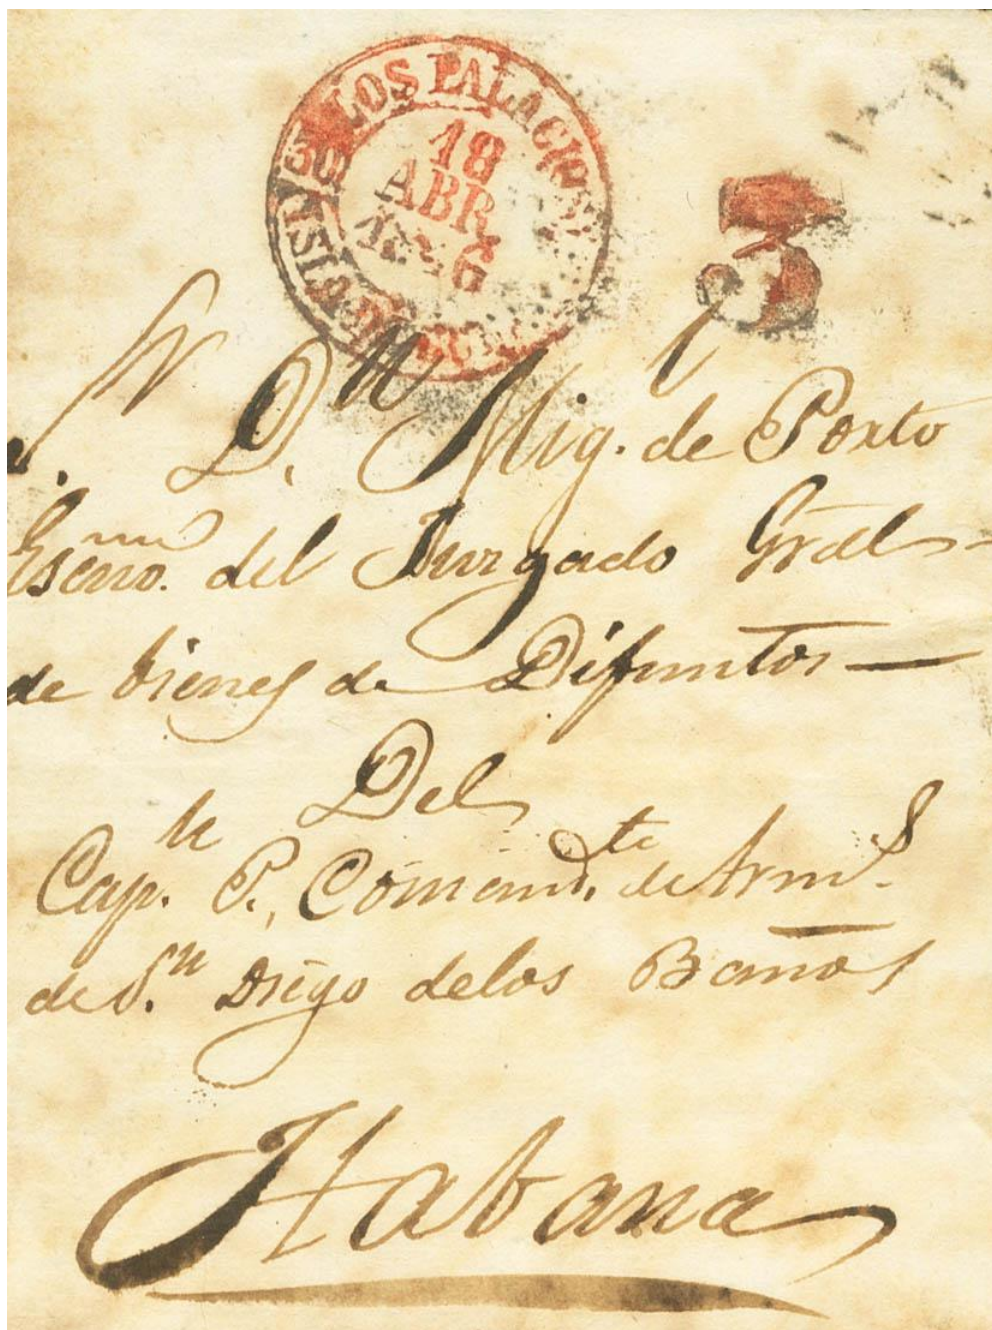 LOS PALACIOS
18
ABR
1846
3
Sr. D.n Mig.l de Porto
Escno. del Juzgado Gral
de bienes de Difuntos
Del
Cap.n P. Comand.te de Arm.s
de S.n Diego delos Baños
Habana